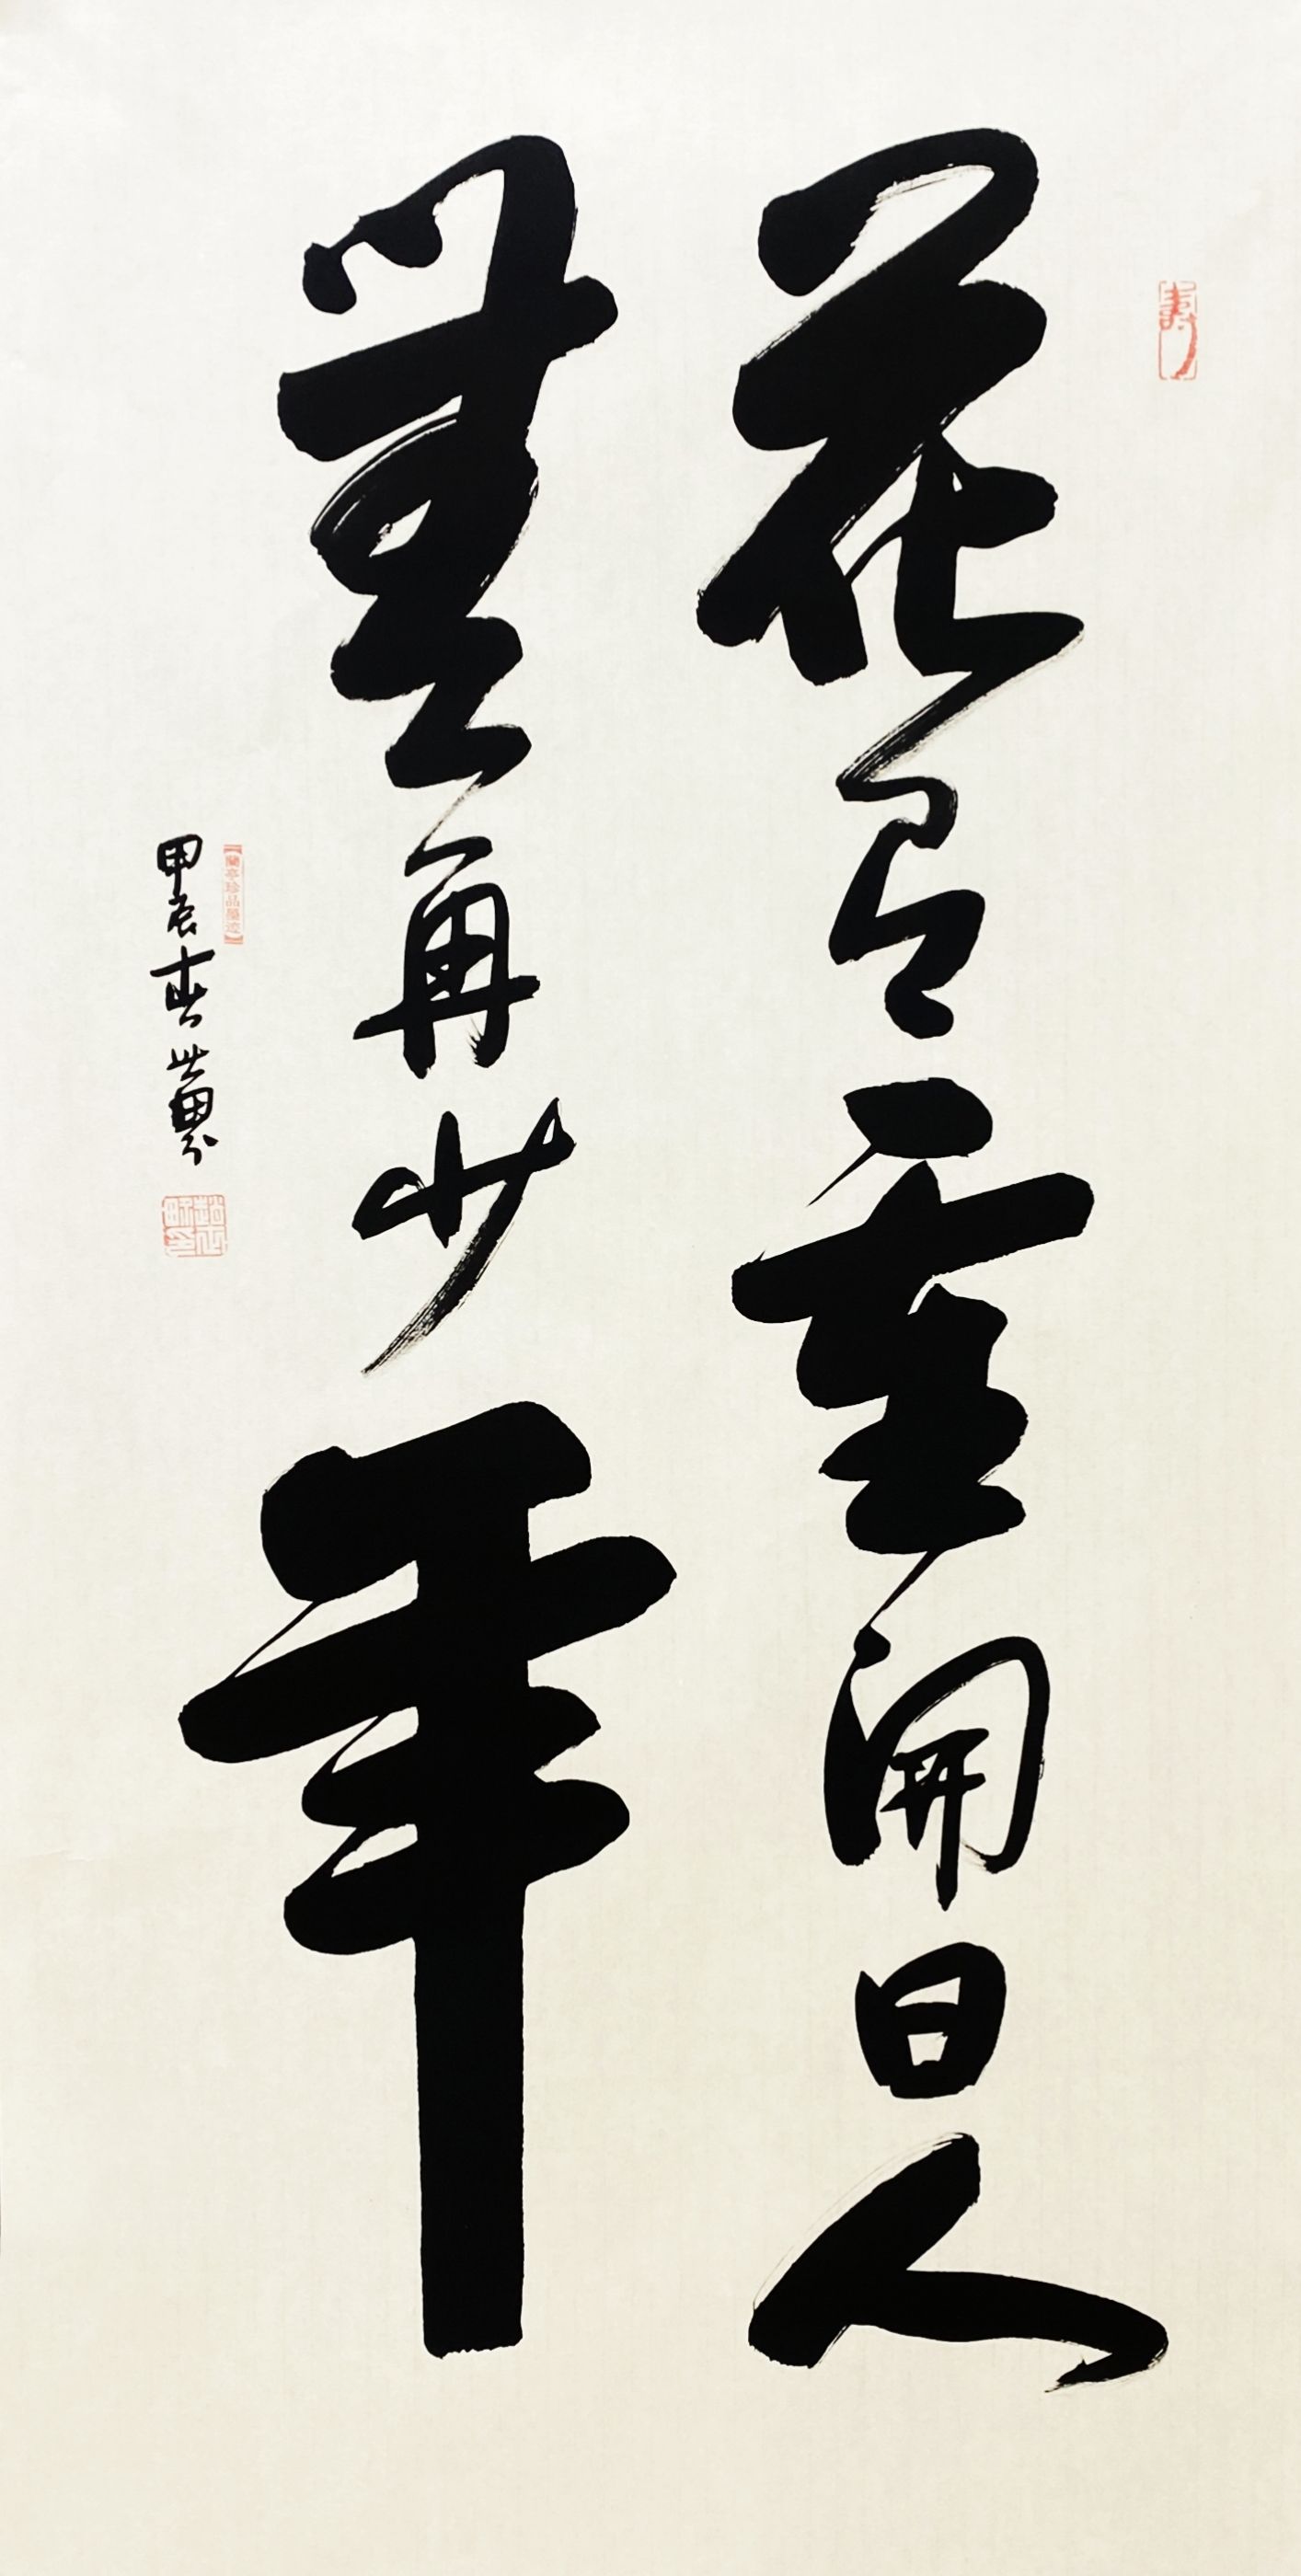 花有重開日人
無再少年
甲辰春
【蘭亭珍品墨迹】